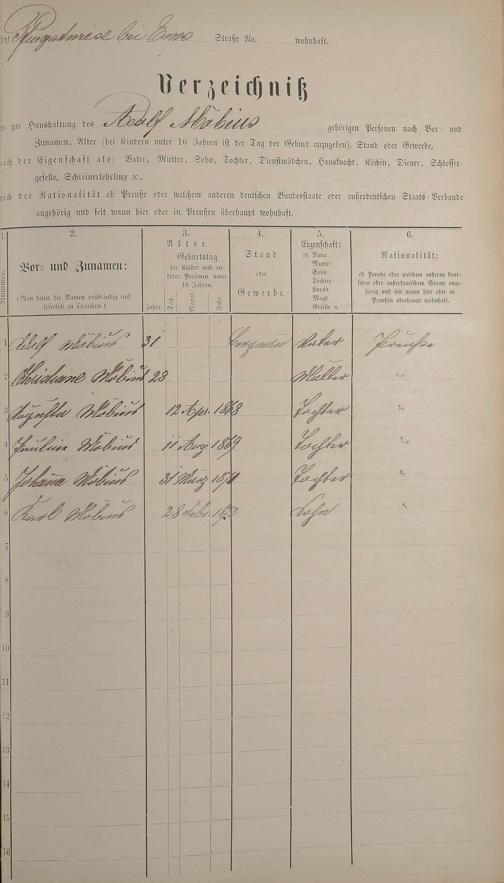 bei Ems Straße No. wohnhaft.
Verzeichniß
zur Haushaltung des Adolf Möbius gehörigen Personen nach Vor- und
Zunamen, Alter (bei Kindern unter 16 Jahren ist der Tag der Geburt anzugeben), Stand oder Gewerbe,
nach der Eigenschaft als: Vater, Mutter, Sohn, Tochter, Dienstmädchen, Hausknecht, Köchin, Diener, Schlosser-
geselle, Schreinerlehrling ꝛc.,
nach der Nationalität ob Preuße oder welchem anderen deutschen Bundesstaate oder außerdeutschen Staats-Verbande
angehörig und seit wann hier oder in Preußen überhaupt wohnhaft.
1. 2. 3. 4. 5. 6.
Nummer.
Vor- und Zunamen:
(Man bittet die Namen vollständig und
leserlich zu schreiben.)
Alter
Geburtstag
der Kinder und an-
derer Personen unter
16 Jahren.
Jahre. Tag. Monat. Jahr.
Stand
oder
Gewerbe.
Eigenschaft:
ob Vater
Mutter
Sohn
Tochter
Knecht
Magd
Geselle u.
Nationalität:
ob Preuße oder welchem anderen deut-
schen oder außerdeutschen Staate ange-
hörig und seit wann hier oder in
Preußen überhaupt wohnhaft.
1 Adolf Möbius 31 Vater Preuße
2 Christiane Möbius 28 Mutter "
3 Auguste Möbius 12 Apr. 1868 Tochter "
4 Pauline Möbius 11 Aug 1869 Tochter "
5 Johanna Möbius 31 März 1871 Tochter "
6 Karl Möbius 28 Febr. 1873 Sohn "
7
8
9
10
11
12
13
14
15
16